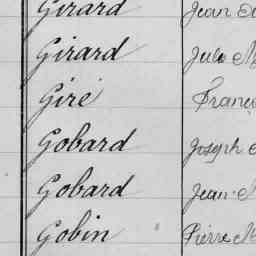 Girard Jean
Girard Jules
Giré
Gobard Joseph
Gobard Jean
Gobin Pierre M